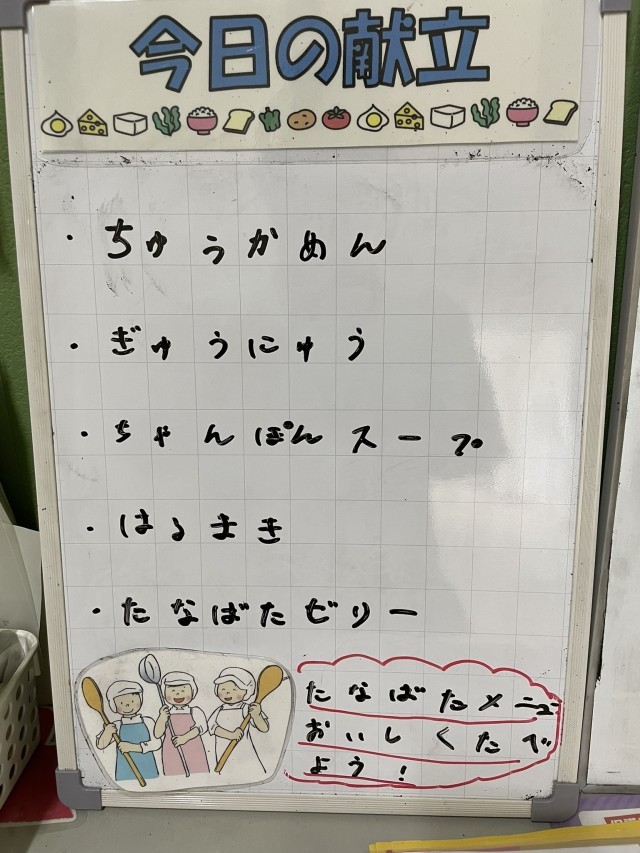 今日の献立
・ちゅうかめん
・ぎゅうにゅう
・ちゃんぽんスープ
・はるまき
・たなばたビリー
たなばたメニュー
おいしくたべ
よう!